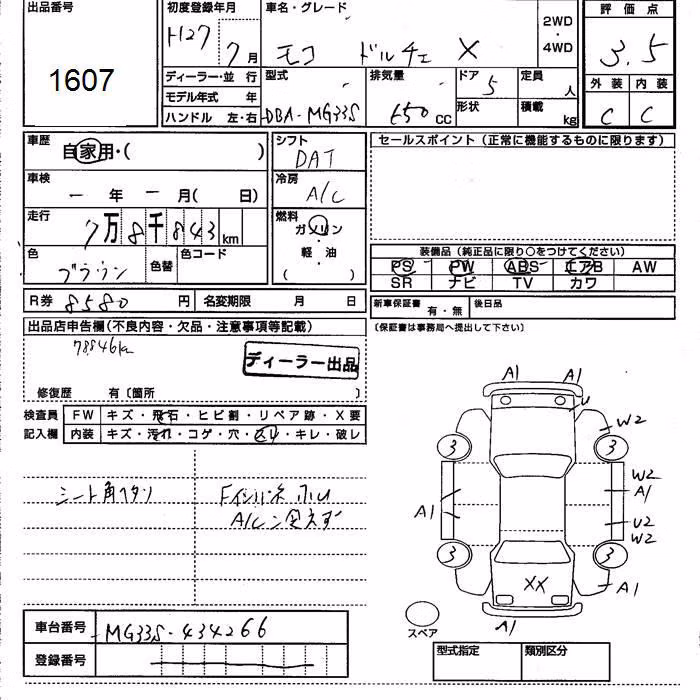 出品番号
1607
初度登録年月
H27 7月
車名・グレード
モコ ドルチェ X
2WD
・
4WD
評価点
3.5
外装 内装
C C
ディーラー・並 行
モデル年式 年
ハンドル 左・右
型式
DBA-MG33S
排気量
650 CC
ドア
5
形状
定員
人
積載
kg
車歴
自家用・( )
車検
ー 年 ー 月( 日)
走行
7万8千843km
色
ブラウン
色替
色コード
シフト
DAT
冷房
A/C
燃料
ガソリン
軽・油
( )
セールスポイント(正常に機能するものに限ります)
装備品(純正品に限り○をつけてください)
PS PW ABS エアB AW
SR ナビ TV カワ
R券 8580 円 名変期限 月 日
新車保証書 有・無 後日品
(保証書は事務局へ提出して下さい)
出品店申告欄(不良内容・欠品・注意事項等記載)
78846km
ディーラー出品
修復歴 有〔箇所 〕
検査員
記入欄
FW キズ・飛石・ヒビ割・リペア跡・X要
内装 キズ・汚れ・コゲ・穴・スレ・キレ・破レ
シート角ヘタリ
A/C
A1 A1
U
W2
3 3
W2
A1
A1
U2
W2
3 3
XX
A1
A1
スペア
車台番号 MG33S-434266
登録番号
型式指定 類別区分